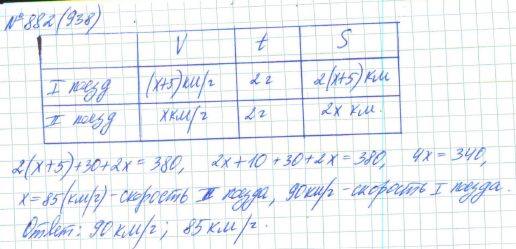 № 882 (938)
V t S
I поезд (x+5) км/ч 2 ч 2(x+5) км
II поезд x км/ч 2 ч 2x км.
2(x+5)+30+2x = 380, 2x+10+30+2x = 380, 4x = 340,
x = 85 (км/ч) - скорость II поезда, 90 км/ч - скорость I поезда.
Ответ: 90 км/ч; 85 км/ч.